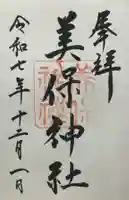 奉拜
美保神社
令和七年十二月一日